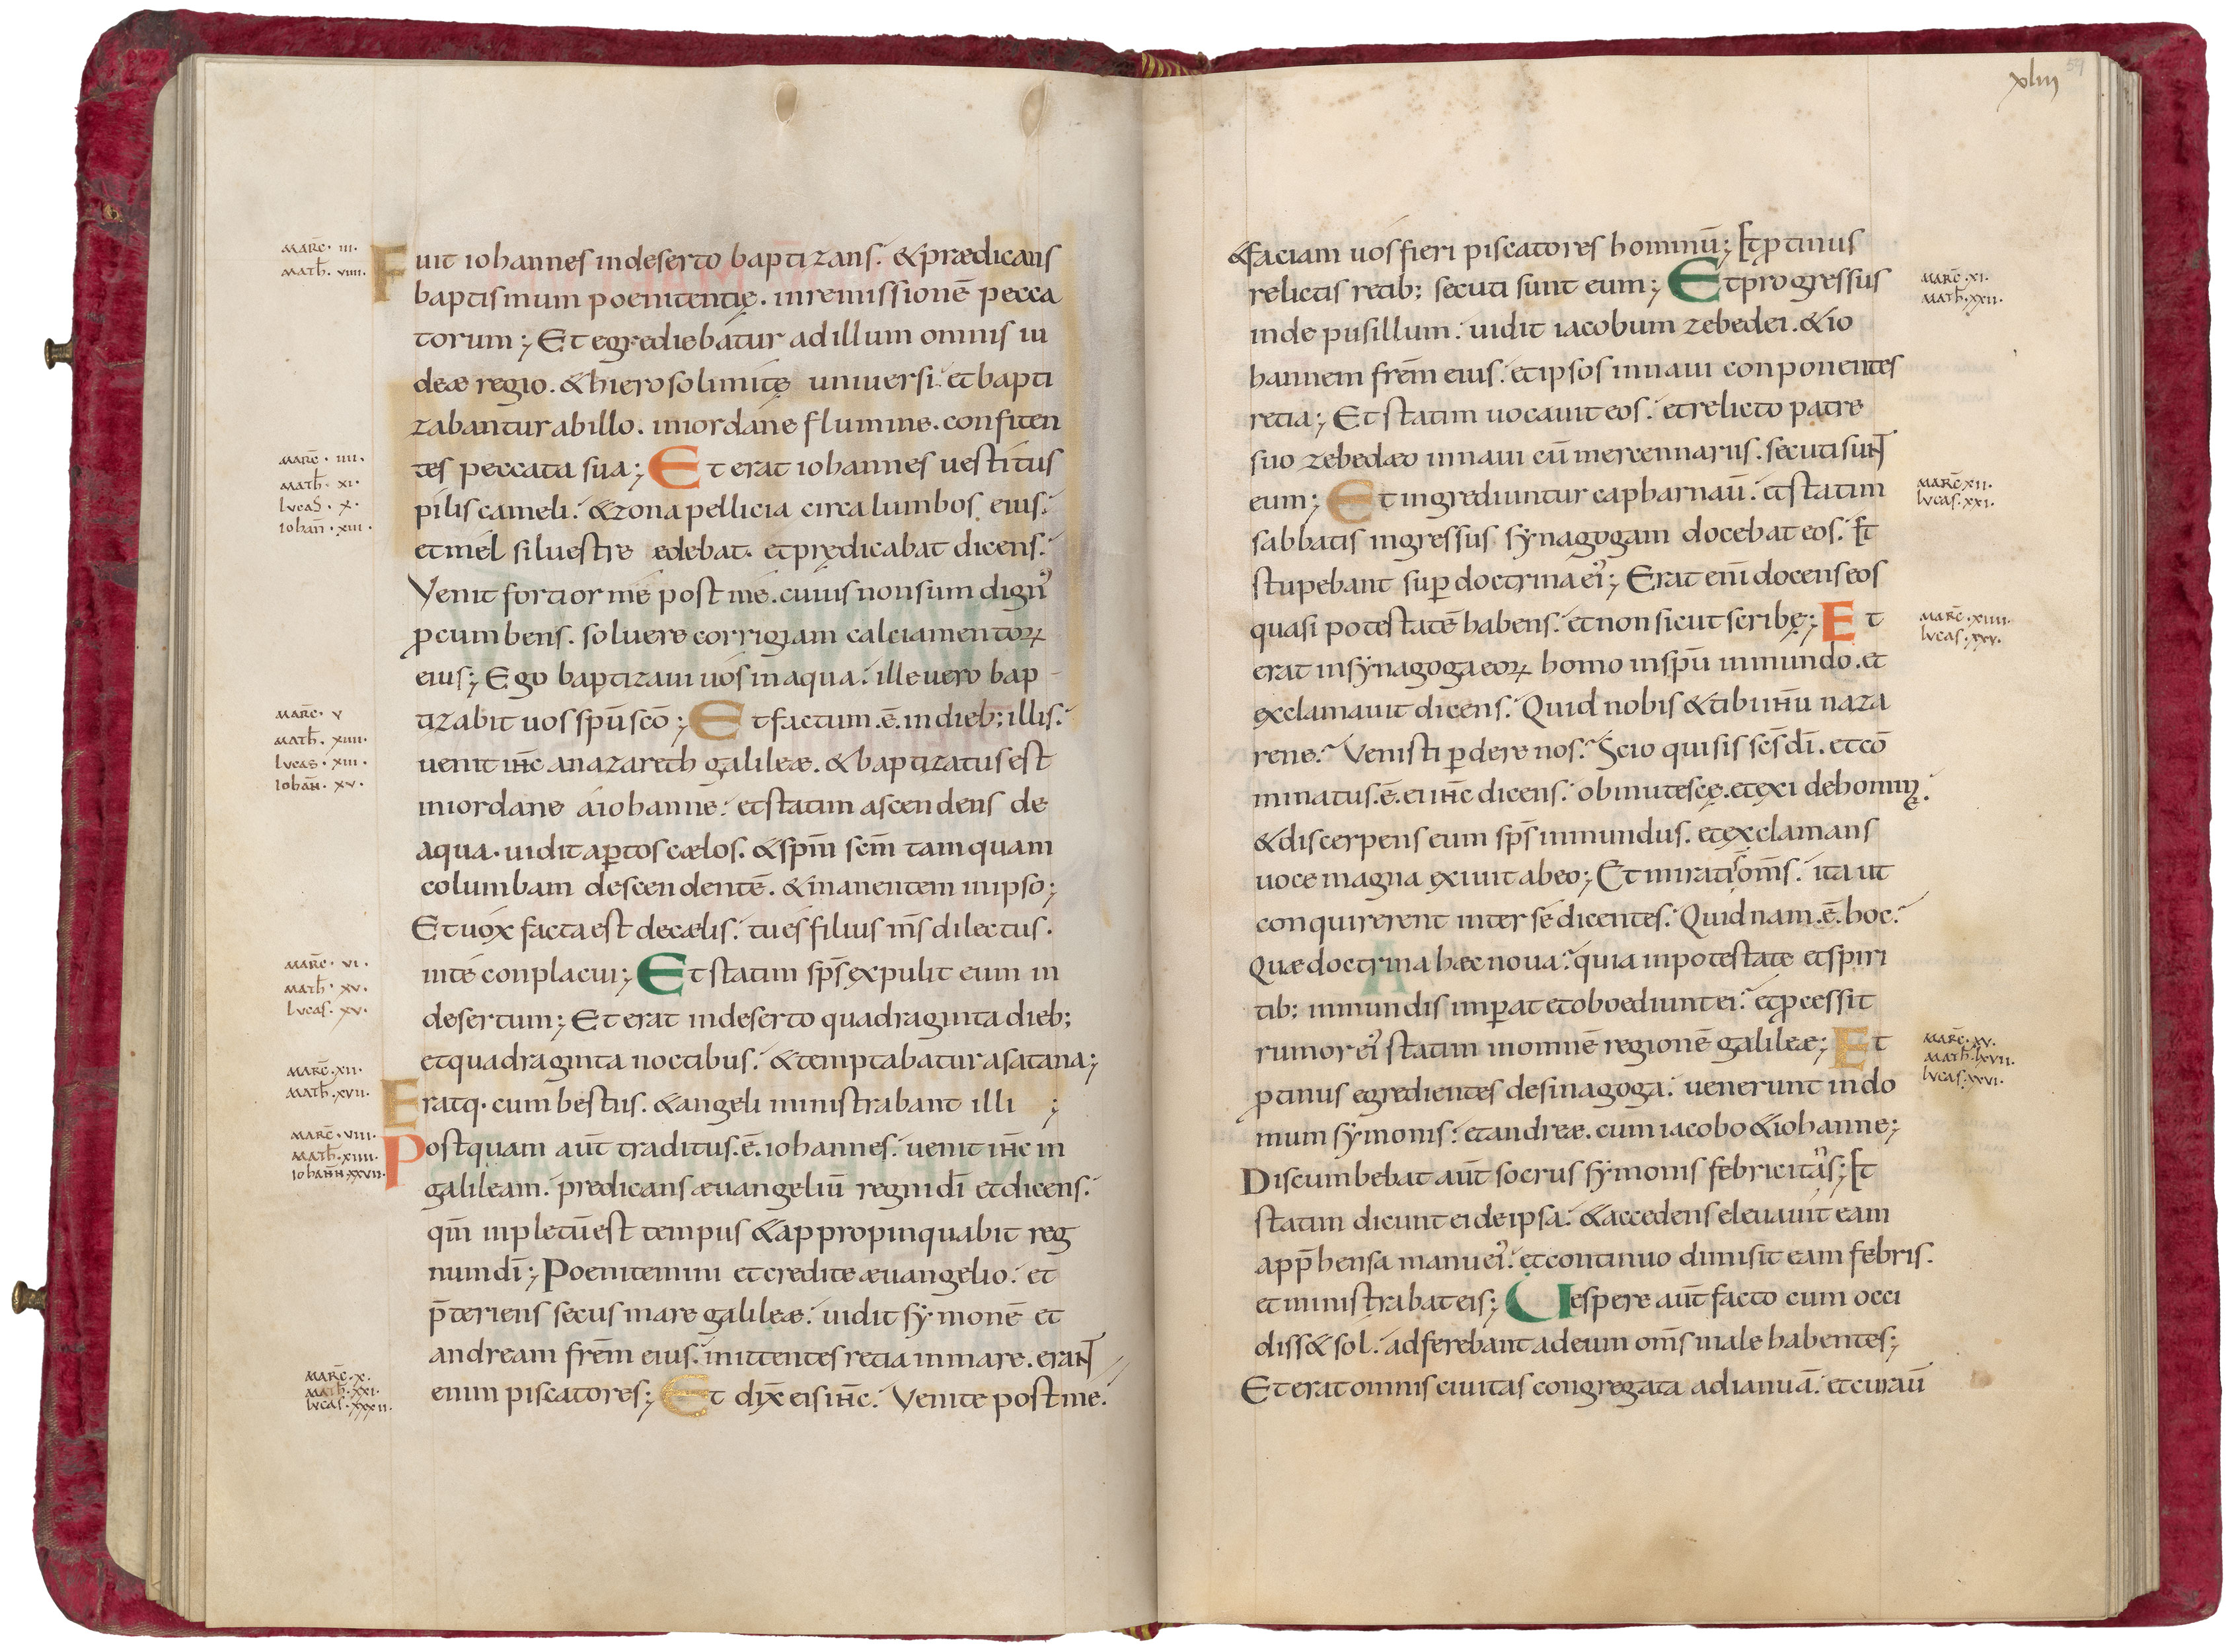 marc̄· iii·
math̄· viiii·
Fuit iohannes in deserto baptizans. & prædicans
baptismum poenitentię. in remissionē pecca
torum; Et egrediebatur ad illum omnis iu
deæ regio. & hierosolimitę uniuersi. et bapti
zabantur ab illo. in iordane flumine. confiten
marc̄· iiii·
tes peccata sua; Et erat iohannes uestitus
math̄· xi·
lucas· x·
pilis cameli. & zona pellicia circa lumbos eius.
iohan̄· xiii·
et mel siluestre edebat. et prędicabat dicens.
Venit fortior me post me. cuius non sum dignꝰ
ꝓcumbens. soluere corrigiam calciamentoꝝ
eius; Ego baptizaui uos in aqua. ille uero bap-
marc̄· v
tizabit uos spū scō; Et factum .ē. in dieb; illis.
math̄· xiiii·
lucas· xiii·
uenit ih̄c a nazareth galileæ. & baptizatus est
iohan̄· xv·
in iordane a iohanne. et statim ascendens de
aqua. uidit aꝑtos cælos. & spm̄ scm̄ tamquam
columbam descendentē. & manentem in ipso;
Et uox facta est de cælis. tu es filius m̄s dilectus.
marc̄· vi·
in te conplacui; Et statim sps̄ expulit eum in
math̄· xv·
lucas· xv·
desertum; Et erat in deserto quadraginta dieb;
et quadraginta noctibus. & temptabatur a satana;
marc̄· xii·
math̄· xvii·
Eratq· cum bestiis. & angeli ministrabant illi ;
marc̄· viii·
math̄· xiiii·
Postquam aūt traditus .ē. iohannes. uenit ih̄c in
iohan̄n· xxvii·
galileam. predicans æuangeliū regni dī et dicens.
qm̄ inpletū est tempus & appropinquabit reg
num dī; Poenitemini et credite æuangelio. et
p̄teriens secus mare galileæ. uidit symonē et
andream frēm eius. mittentes retia in mare. erant
marc̄· x·
math̄· xxi·
enim piscatores; Et dix̄ eis ih̄c. Venite post me.
lucas· xxxii·
xliii
59
& faciam uos fieri piscatores hominū; Et ꝓtinus
relictis retib; secuti sunt eum; Et progressus
marc̄· xi·
math̄· xxii·
inde pusillum. uidit iacobum zebedei. & io
hannem frēm eius. et ipsos in naui conponentes
retia; Et statim uocauit eos. et relicto patre
suo zebedæo in naui cū mercennariis. secuti sunt
eum; Et ingrediuntur capharnaū. et statim
marc̄· xii·
lucas· xxi·
sabbatis ingressus synagogam docebat eos. Et
stupebant suꝑ doctrina eiꝰ; Erat eni̅ docens eos
quasi potestatē habens. et non sicut scribę; Et
marc̄· xiiii·
lucas· xxv·
erat in synagoga eoꝝ homo in spū inmundo. et
exclamauit dicens. Quid nobis & tibi ihū naza
rene. Venisti ꝑdere nos. Scio qui sis scs̄ dī. et cō
minatus .ē. ei ih̄c dicens. obmutescę. et exi de hominę.
& discerpens eum sps̄ inmundus. et exclamans
uoce magna exiuit ab eo; Et mirati s̄ om̄s. ita ut
conquirerent inter se dicentes. Quid nam .ē. hoc.
Quæ doctrina hæc noua. quia in potestate et spiri
tib; inmundis imꝑat et oboediunt ei. et ꝓcessit
rumor eiꝰ statim in omnē regionē galileæ; Et
marc̄· xv·
math̄· lxvii·
lucas· xxvi·
ꝓtinus egredientes de sinagoga. uenerunt in do
mum symonis. et andreæ. cum iacobo & iohanne;
Discumbebat aūt socrus symonis febricitās; Et
statim dicunt ei de ipsa. & accedens eleuauit eam
app̄hensa manu eiꝰ. et continuo dimisit eam febris.
et ministrabat eis; Uespere aūt facto cum occi
diss& sol. adferebant ad eum om̄s male habentes;
Et erat omnis ciuitas congregata ad ianuā. et curaū